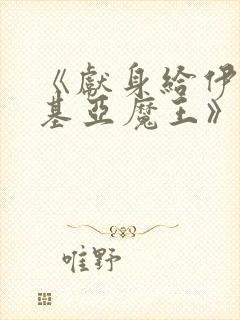 《獻身給伊
基亞魔王》
唯野